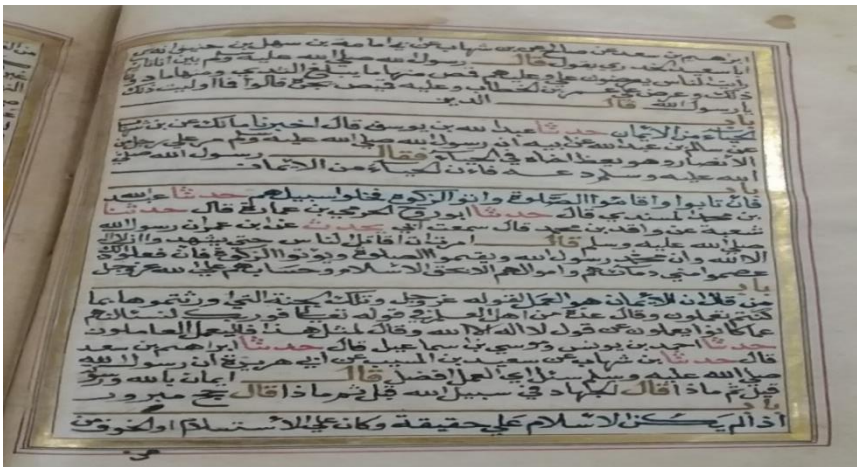 ابراهيم بن سعد عن صالح عن بن شهاب عن ابي امامة بن سهل بن حنيف انه سمع
ابا سعيد الخدري يقول قال رسول الله صلى الله عليه وسلم بين انا نائم
رايت الناس يعرضون علي وعليهم قمص منها ما يبلغ الثدي ومنها ما دون
ذلك وعرض علي عمر بن الخطاب وعليه قميص يجره قالوا فما اولت ذلك
يا رسول الله قال الدين
باب
الحياء من الايمان حدثنا عبد الله بن يوسف قال اخبرنا مالك عن بن شهاب
عن سالم بن عبد الله عن ابيه ان رسول الله صلى الله عليه وسلم مر على رجل من
الانصار وهو يعظ اخاه في الحياء فقال رسول الله صلى
الله عليه وسلم دعه فان الحياء من الايمان
باب
فان تابوا واقاموا الصلوة واتوا الزكوة فخلوا سبيلهم حدثنا عبد الله
بن محمد المسندي قال حدثنا ابو روح الحرمي بن عمارة قال حدثنا
شعبة عن واقد بن محمد قال سمعت ابي يحدث عن بن عمر ان رسول الله
صلى الله عليه وسلم قال امرت ان اقاتل الناس حتى يشهدوا ان لا اله
الا الله وان محمد رسول الله ويقيموا الصلوة ويوتوا الزكوة فاذا فعلوا ذلك
عصموا مني دماءهم واموالهم الا بحق الاسلام وحسابهم على الله عز وجل
باب
من قال ان الايمان هو العمل لقوله عز وجل وتلك الجنة التي اورثتموها بما
كنتم تعملون وقال عدة من اهل العلم في قوله تعالى فوربك لنسئلنهم
عما كانوا يعملون عن قول لا اله الا الله وقال لمثل هذا فليعمل العاملون
حدثنا احمد بن يونس وموسى بن اسماعيل قال حدثنا ابراهيم بن سعد
قال حدثنا بن شهاب عن سعيد بن المسيب عن ابي هريرة ان رسول الله
صلى الله عليه وسلم سئل اي العمل افضل قال ايمان بالله ورسوله
قيل ثم ماذا قال الجهاد في سبيل الله قيل ثم ماذا قال حج مبرور
باب
اذا لم يكن الاسلام على حقيقة وكان على الاستسلام او الخوف من